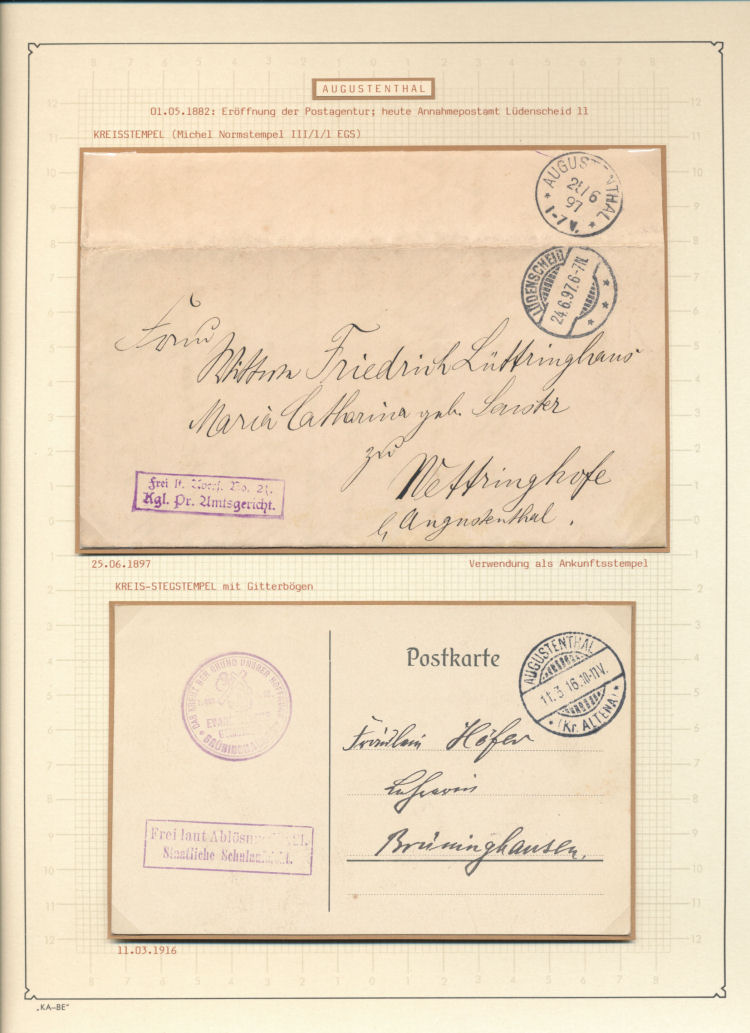 AUGUSTENTHAL
01.05.1882: Eröffnung der Postagentur; heute Annahmepostamt Lüdenscheid 11
KREISSTEMPEL (Michel Normstempel III/1/1 EGS)
AUGUSTENTHAL
6
97
1-7 V.
LÜDENSCHEID
24.6.97.6-7N.
Frau
Wittwe Friedrich Lüttringhaus
Maria Catharina geb.
zu
Wettringhofe
b/ Augustenthal.
Frei lt. No. 21.
Kgl. Pr. Amtsgericht.
25.06.1897
Verwendung als Ankunftsstempel
KREIS-STEGSTEMPEL mit Gitterbögen
Postkarte
AUGUSTENTHAL
11.3.16.10-11V.
(Kr. ALTENA)
DAS KREUZ DER GRUND UNSRER HOFFNUNG
Fräulein Höfer
Lehrerin
Brüninghausen.
Frei laut
Staatliche
11.03.1916
„KA-BE"